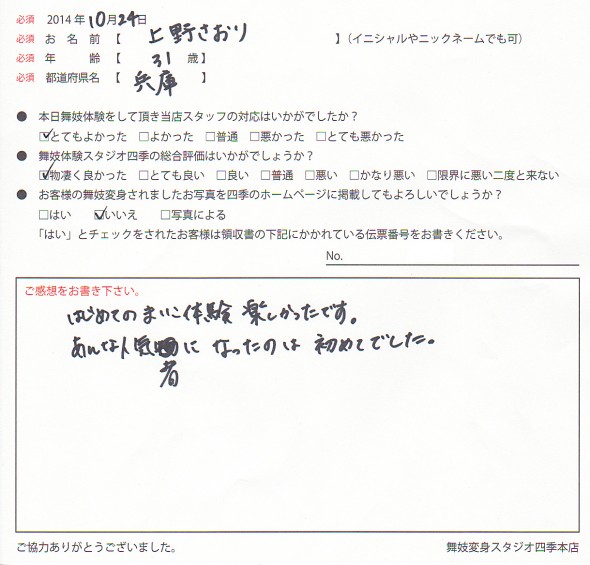 必須 2014年10月24日
必須 お名前【 上野さおり 】(イニシャルやニックネームでも可)
必須 年齢【 31 歳】
必須 都道府県名【 兵庫 】
● 本日舞妓体験をして頂き当店スタッフの対応はいかがでしたか?
☑とてもよかった □よかった □普通 □悪かった □とても悪かった
● 舞妓体験スタジオ四季の総合評価はいかがでしょうか?
☑物凄く良かった □とても良い □良い □普通 □悪い □かなり悪い □限界に悪い二度と来ない
● お客様の舞妓変身されましたお写真を四季のホームページに掲載してもよろしいでしょうか?
□はい ☑いいえ □写真による
「はい」とチェックをされたお客様は領収書の下記にかかれている伝票番号をお書きください。
No.
ご感想をお書き下さい。
はじめてのまいこ体験楽しかったです。
あんな人気者になったのは初めてでした。
ご協力ありがとうございました。 舞妓変身スタジオ四季本店